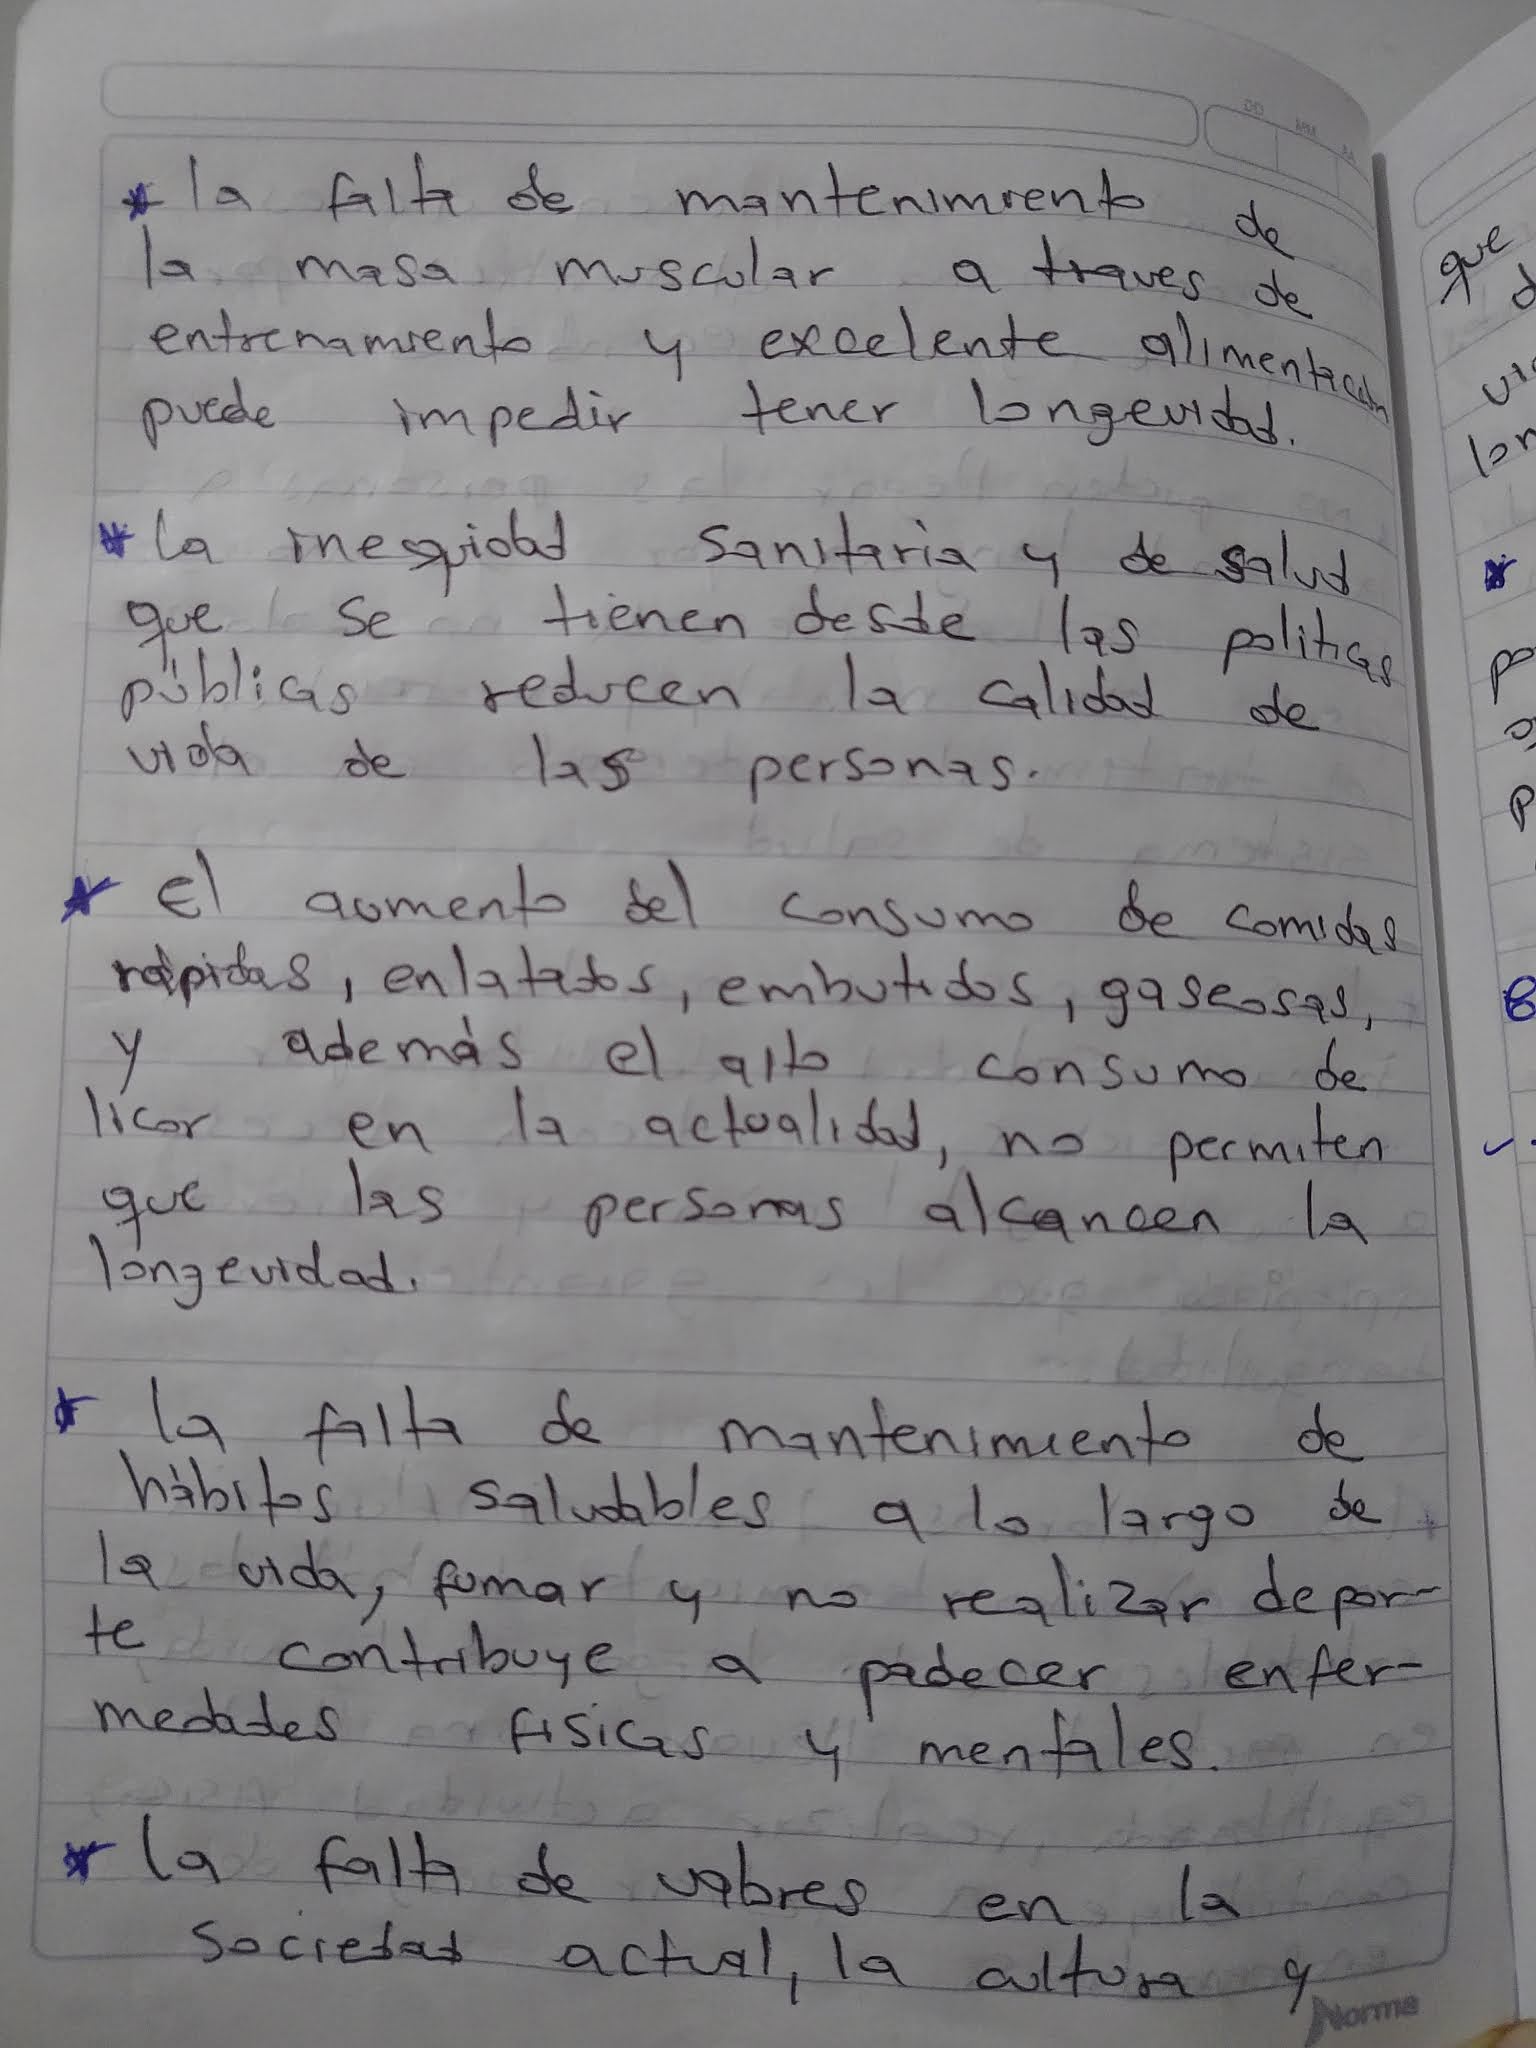 * la falta de mantenimiento de
la masa muscular a traves de
entrenamiento y excelente alimentación
puede impedir tener longevidad.
* La inequidad sanitaria y de salud
que se tienen desde las politicas
públicas reducen la calidad de
vida de las personas.
* El aumento del consumo de comidas
rápidas, enlatados, embutidos, gaseosas,
y además el alto consumo de
licor en la actualidad, no permiten
que las personas alcancen la
longevidad.
* la falta de mantenimiento de
hábitos saludables a lo largo de
la vida, fumar y no realizar depor-
te contribuye a padecer enfer-
medades fisicas y mentales.
* la falta de valores en la
sociedad actual, la cultura y
Norma
DD MM AA
que